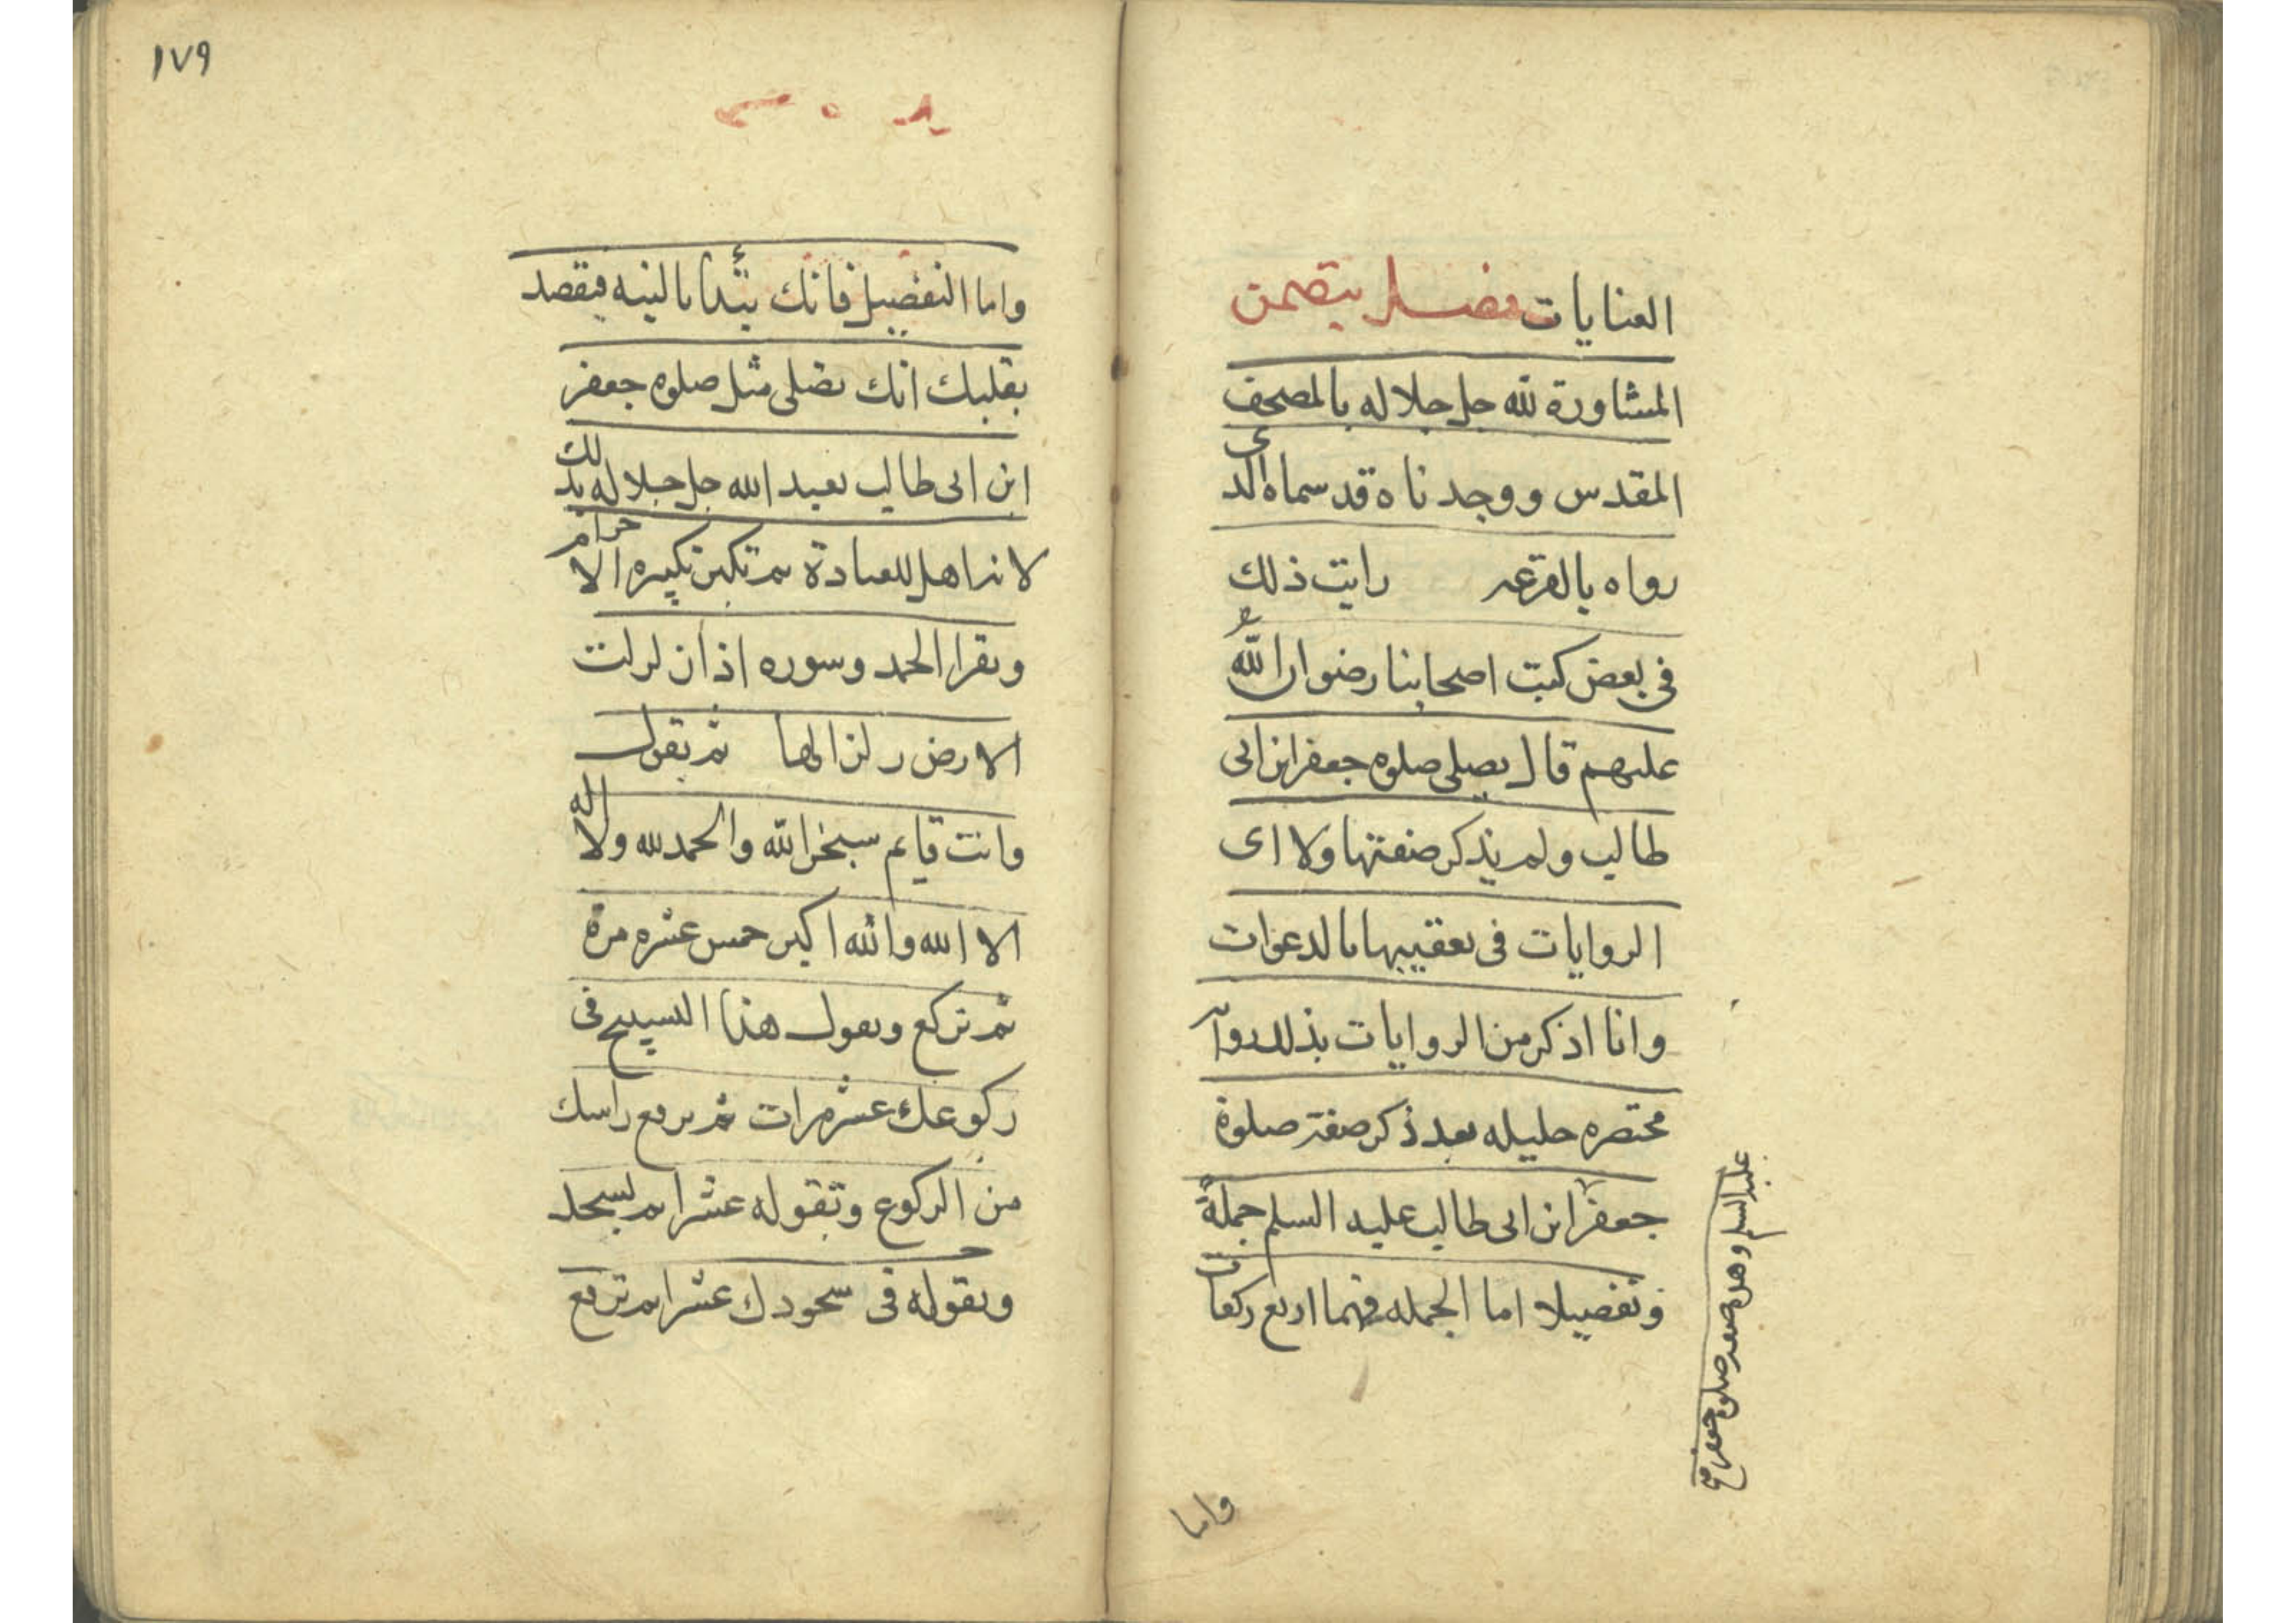 العنايات فصل يتضمن
المشاورة لله جل جلاله بالمصحف
المقدس ووجدناه قد سماه الذى
رواه بالقرعه رايت ذلك
فى بعض كتب اصحابنا رضوان الله
عليهم قال يصلى صلوه جعفر ابن ابى
طالب ولم يذكر صفتها ولا اى
الروايات فى تعقيبها بالدعوات
وانا اذكر من الروايات بذلك رواية
مختصره جليله بعد ذكر صفة صلوة
جعفر ابن ابى طالب عليه السلم جملة
وتفصيلا اما الجمله فهما اربع ركعات
عليه السلم وهذه صفة صلوة جعفر
واما
١٧٩
واما التفصيل فانك يتدأ بالنيه فيقصد
بقلبك انك تصلى مثل صلوه جعفر
ابن ابى طالب تعبد الله جل جلاله بذلك
لانه اهل للعبادة ثم تكبر تكبيره الاحرام
وتقرا الحمد وسوره اذا زلزلت
الارض زلزالها ثم يقول
وانت قايم سبحن الله والحمد لله ولا اله
الا الله والله اكبر خمس عشره مرة
ثم تركع وتقول هذا التسبيح فى
ركوعك عشر مرات ثم ترفع راسك
من الركوع وتقوله عشرا ثم تسجد
وتقوله فى سجودك عشرا ثم ترفع